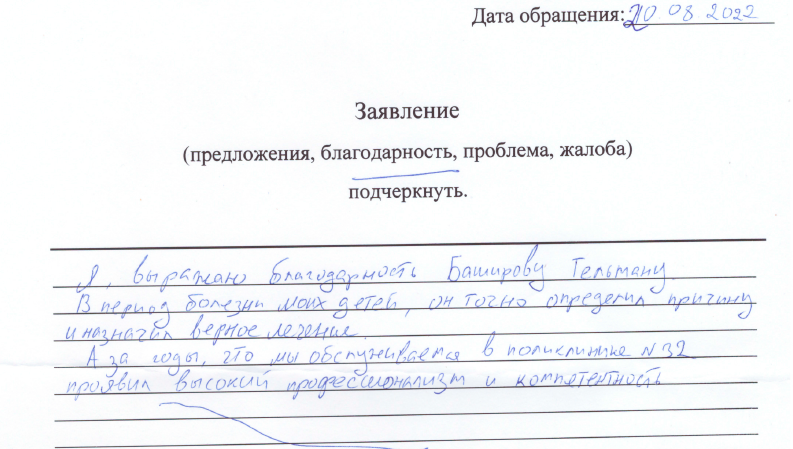 Дата обращения: 10.08.2022
Заявление
(предложения, благодарность, проблема, жалоба)
подчеркнуть.
Я, выражаю благодарность Баширову Тельману.
В период болезни моих детей, он точно определил причину
и назначил верное лечение
А за годы, что мы обслуживаемся в поликлинике N 32
проявил высокий профессионализм и компетентность